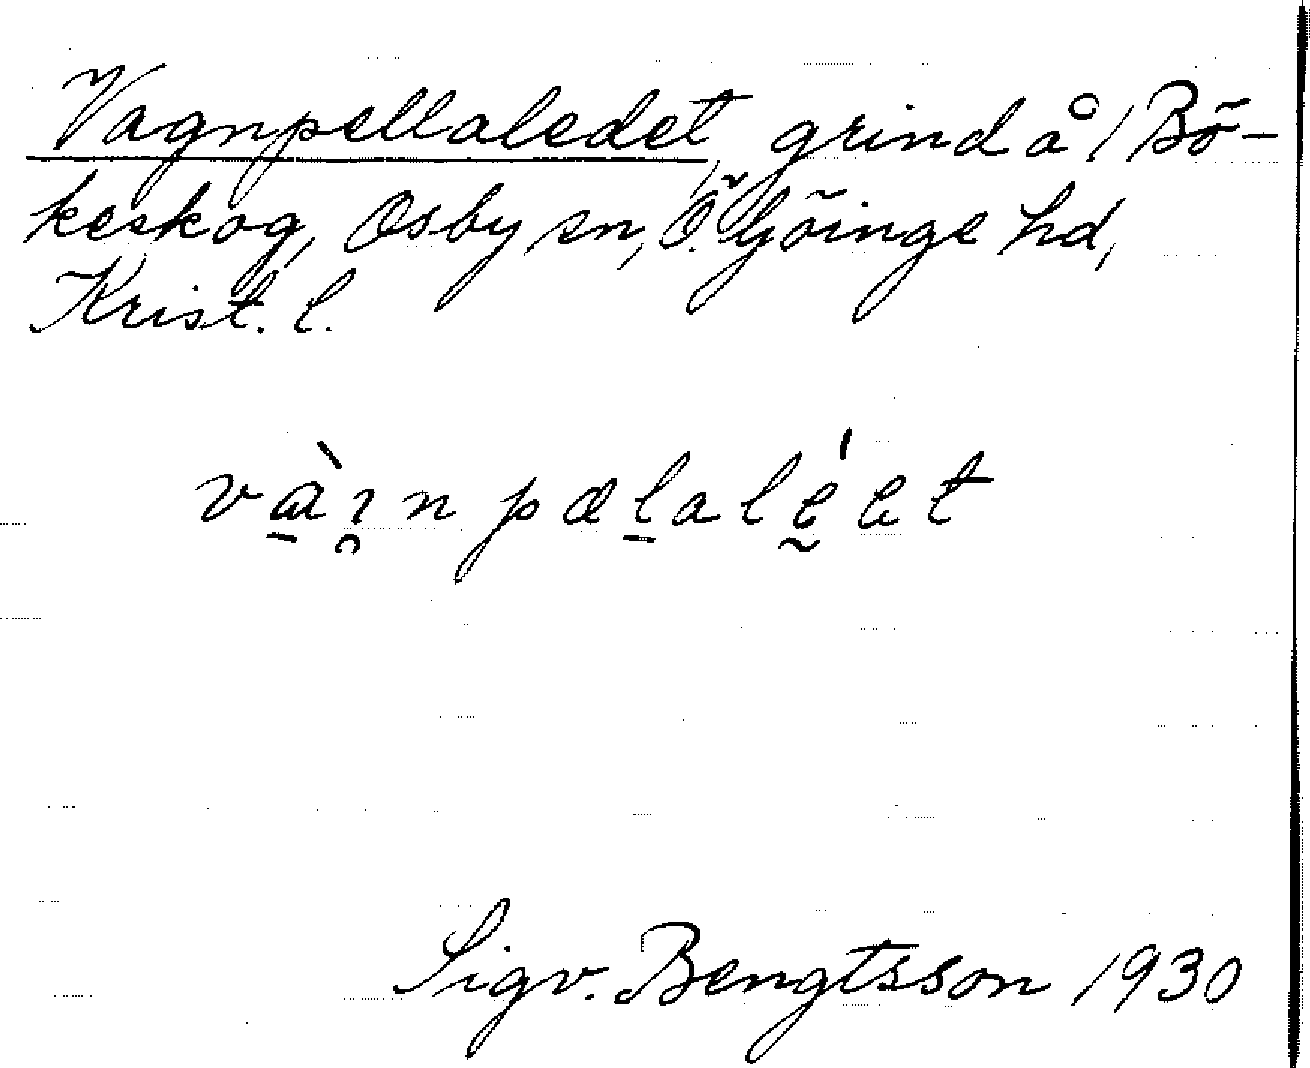 Vagnpellaledet, grind å 1 Bö-
keskog, Osby sn, Ö. Göinge hd,
Krist. l.
vɑ̱̀ı̥n pæḻalḛ́et
Sigv. Bengtsson 1930